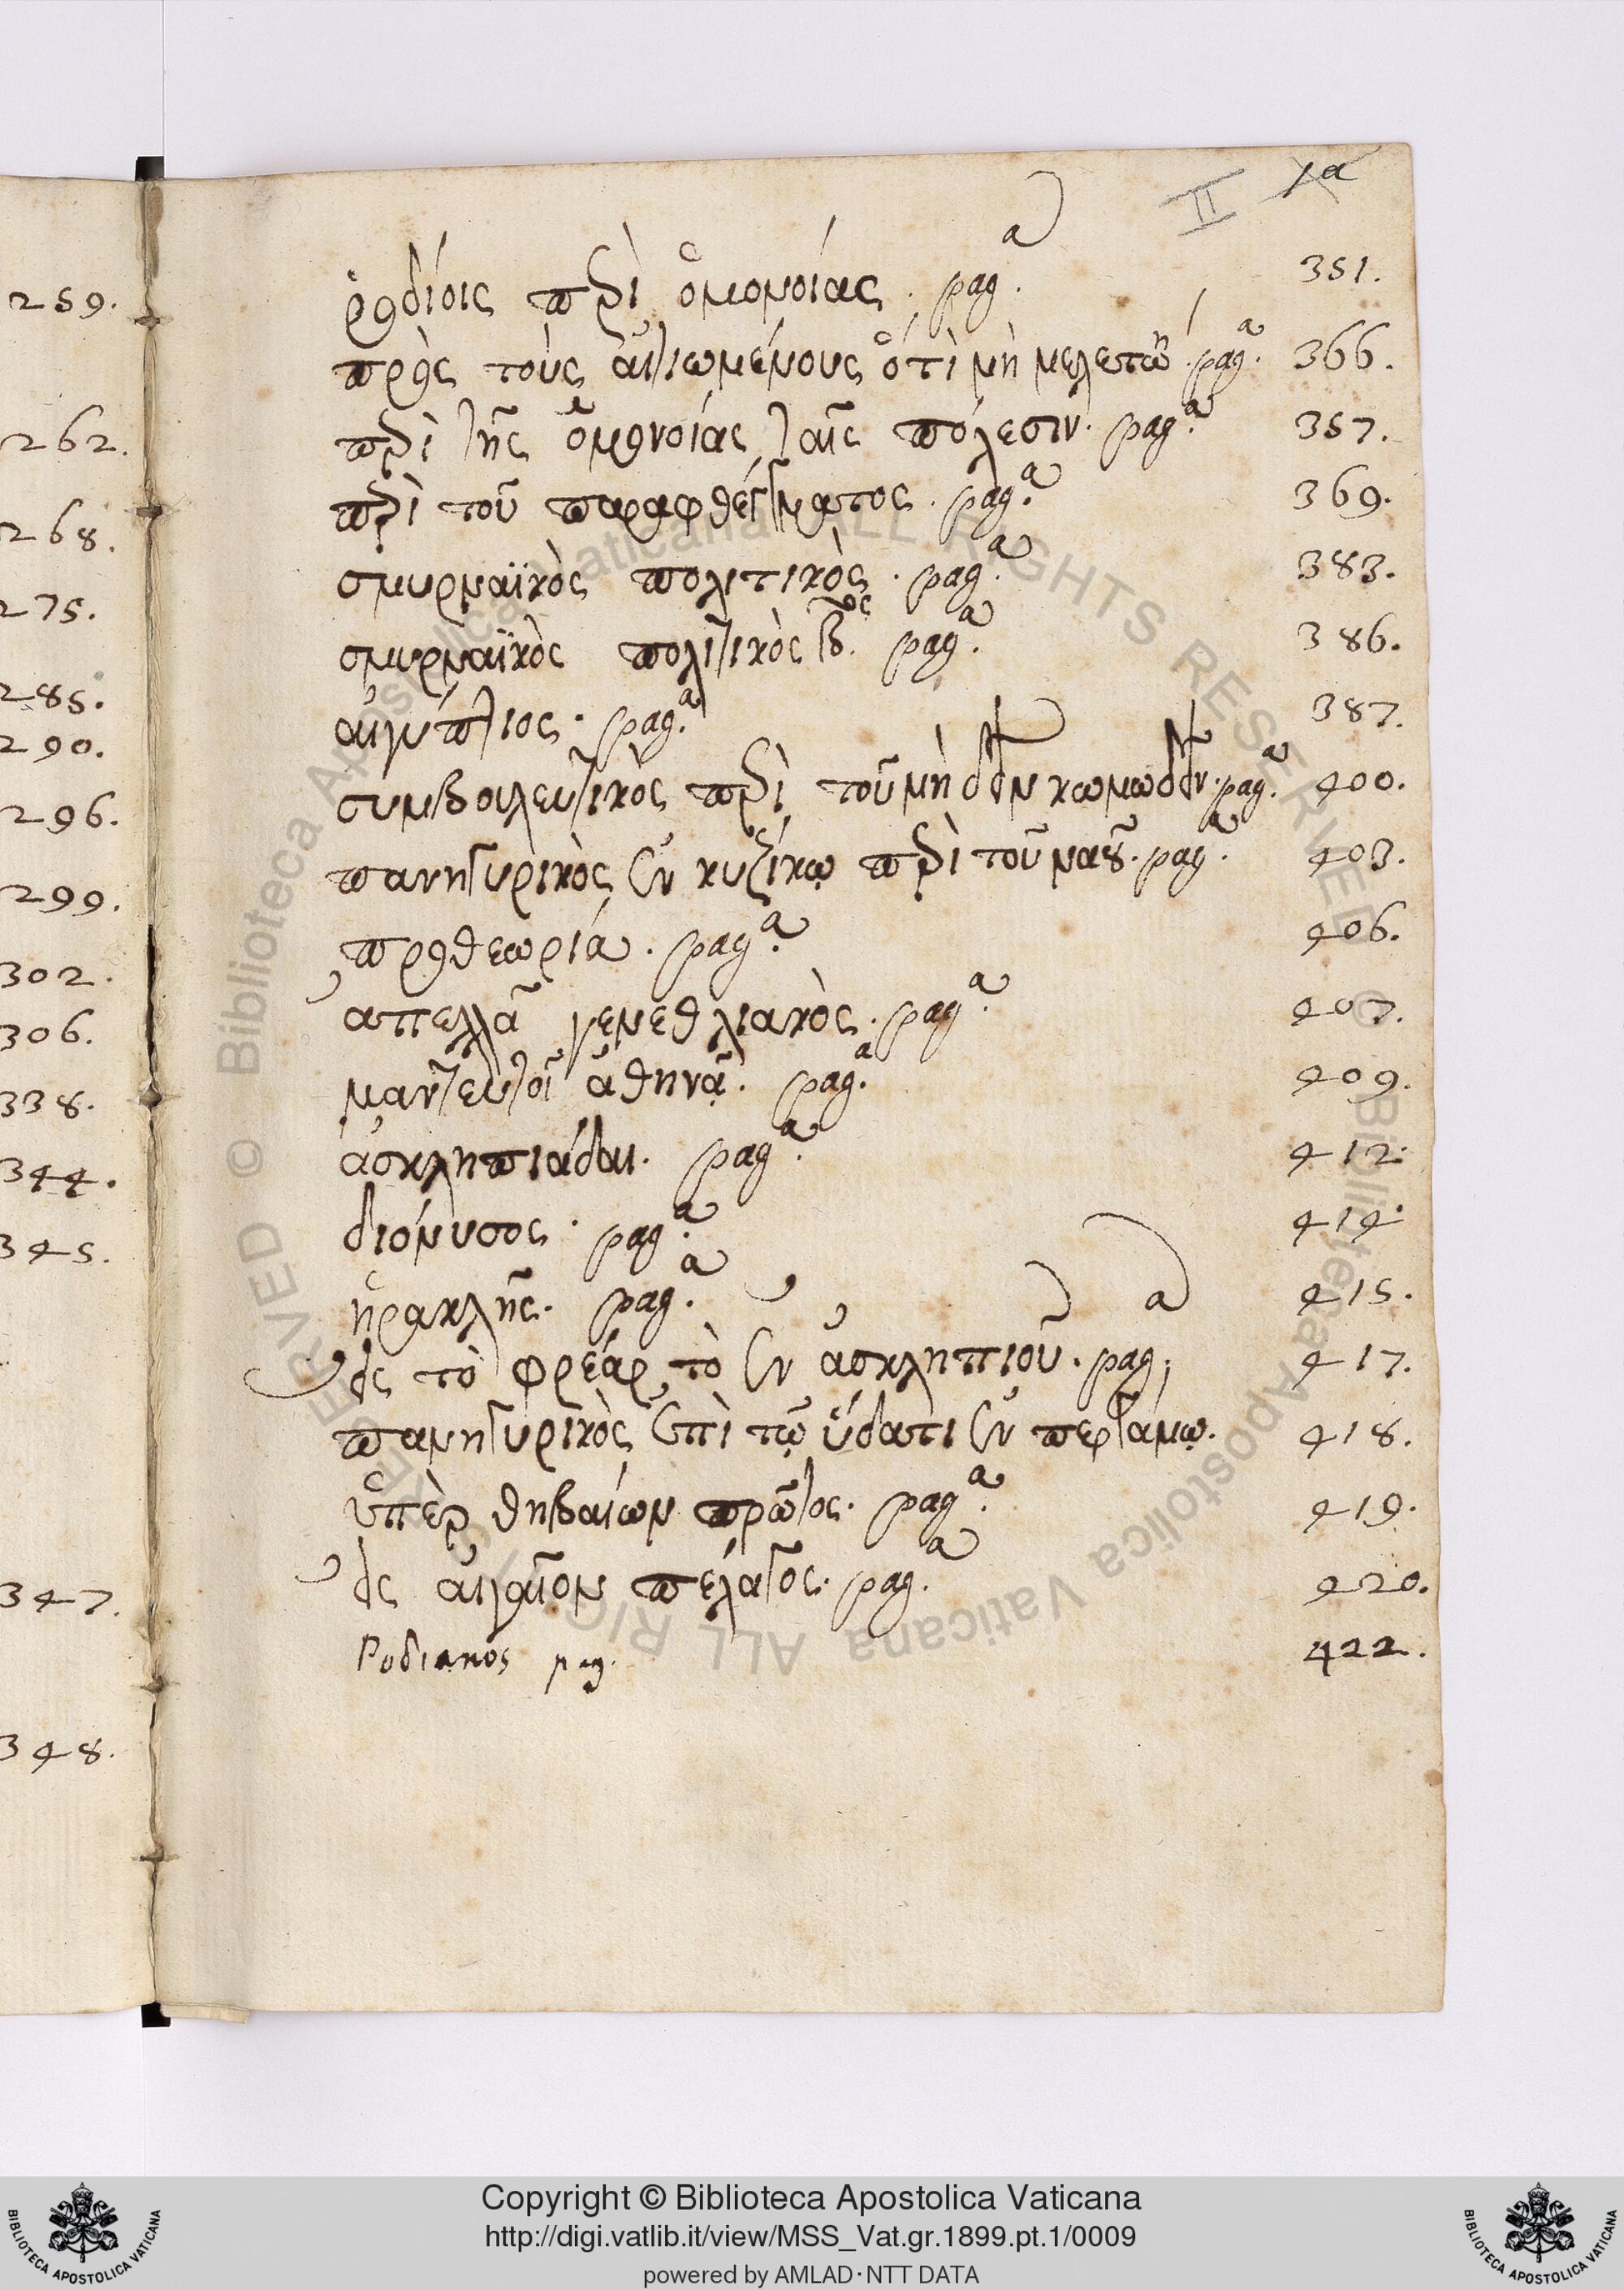 1a
II
ῥοδίοις περὶ ὁμονοίας. pag.ª 351.
πρὸς τοὺς αἰτιωμένους ὅτι μὴ μελετώη. pag.ª 366.
περὶ τῆς ὁμονοίας ταῖς πόλεσιν. pag.ª 357.
περὶ τοῦ παραφθέγματος. pag.ª 369.
σμυρναϊκὸς πολιτικὸς. pag.ª 383.
σμυρναϊκὸς πολιτικὸς βος. pag.ª 386.
αἰγύπτιος. pag.ª 387.
συμβουλευτικὸς περὶ τοῦ μὴ δεῖν κωμωδεῖν. pag.ª 400.
πανηγυρικὸς ἐν κυζίκῳ περὶ τοῦ ναοῦ. pag.ª 403.
προθεωρία. pag.ª 406.
απελλᾶ γενεθλιακὸς. pag.ª 407.
μαντευτοὶ ἀθηνᾶ. pag.ª 409.
ἀσκληπιάδαι. pag.ª 412.
διόνυσος. pag.ª 414.
ἡρακλῆς. pag.ª 415.
εἰς τὸ φρέαρ τὸ ἐν ἀσκληπιοῦ. pag.ª 417.
πανηγυρικὸς ἐπὶ τῷ ὕδατι ἐν περγάμῳ. 418.
ὑπὲρ θηβαίων πρῶτος. pag.ª 419.
εἰς αἰγαῖον πέλαγος. pag.ª 420.
Ροδιακος pag. 422.
259.
262.
268.
275.
285.
290.
296.
299.
302.
306.
338.
344.
345.
347.
348.
© Biblioteca Apostolica Vaticana ALL RIGHTS RESERVED © Biblioteca Apostolica Vaticana ALL RIGHTS RESERVED
Copyright © Biblioteca Apostolica Vaticana
http://digi.vatlib.it/view/MSS_Vat.gr.1899.pt.1/0009
powered by AMLAD·NTT DATA
BIBLIOTECA APOSTOLICA VATICANA
BIBLIOTECA APOSTOLICA VATICANA